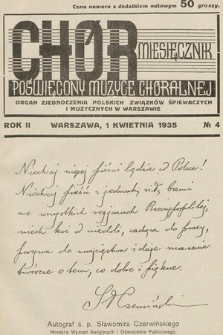 Cena numeru z dodatkiem nutowym 50 groszy.
CHÓR
MIESIĘCZNIK
POŚWIĘCONY MUZYCE CHÓRALNEJ
ORGAN ZJEDNOCZENIA POLSKICH ZWIĄZKÓW ŚPIEWACZYCH
I MUZYCZNYCH W WARSZAWIE
ROK II WARSZAWA, 1 KWIETNIA 1935 № 4
Niechaj więcej pieśni będzie w Polsce!
Niechaj pieśń z jednaką siłą brzmi
we wszystkich Rzeczypospolitej,
niech koi w niedoli, zachęca do pracy,
porywa do i daje marzenie
twórcze o tem, co dobre i piękne.
Autograf ś. p. Sławomira Czerwińskiego
Ministra Wyznań Religijnych i Oświecenia Publicznego.